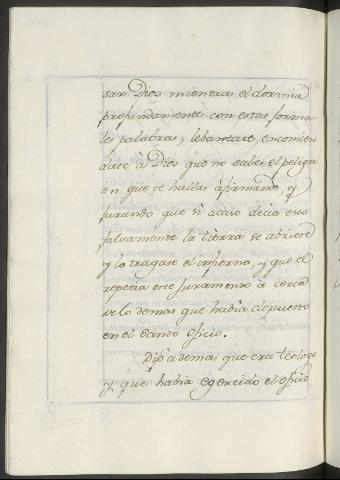 sar Dios mientras el dormia
profundamente con estas forma-
les palabras, lebantate, encomien-
date à Dios que no sabes el peligro
en que te hallas àfirmando, y
jurando que si acaso decia esto
falsamente la tierra se abriese
y lo tragase el infierno, y que el
repetia este juramento à cerca
de lo demas que habia depuesto
en el Santo Oficio.
Dijo ademas que era teologo
y que habia egercido el oficio